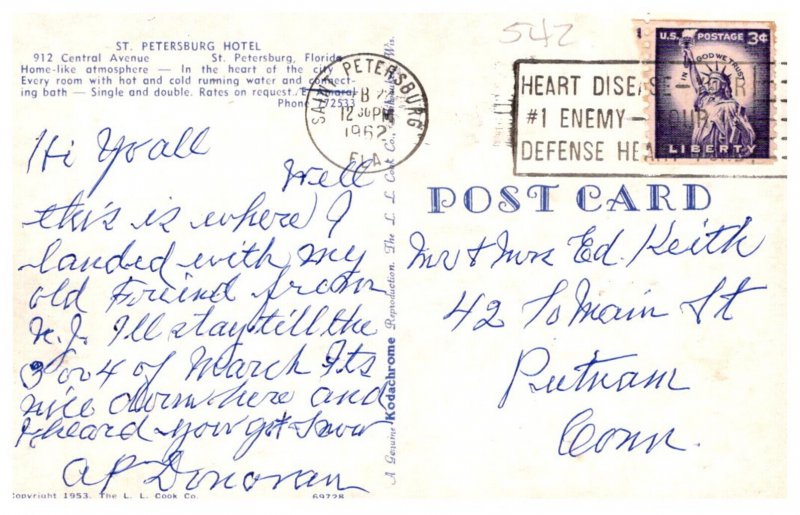 ST. PETERSBURG HOTEL
912 Central Avenue St. Petersburg, Florida
Home-like atmosphere — In the heart of the city
Every room with hot and cold running water and connect-
ing bath — Single and double. Rates on request. E. Amaral
Phone 72533
Hi Yoall
Well
this is where I
landed with my
old Friend from
N.J. I'll stay till the
3 or 4 of March Its
nice down here and
I heard you got Snow
AP Donovan
Copyright 1953. The L. L. Cook Co.
69728
A Genuine Kodachrome Reproduction. The L. L. Cook Co., Wis.
542
SAINT PETERSBURG
FEB
12 30 PM
1962
FLA
HEART DISEASE — YOUR
#1 ENEMY — YOUR
DEFENSE HEART FUND
U.S. POSTAGE 3¢
IN GOD WE TRUST
LIBERTY
POST CARD
Mr & Mrs Ed. Keith
42 So Main St
Putnam
Conn.